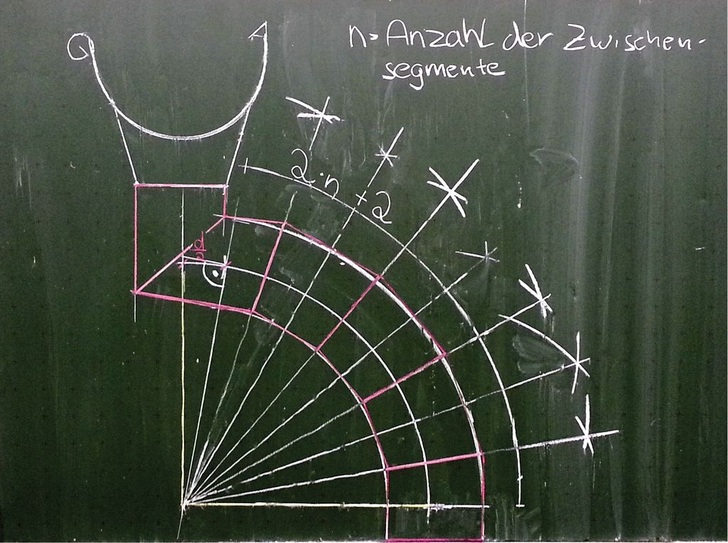 n= Anzahl der Zwischen-
segmente
2·n+2